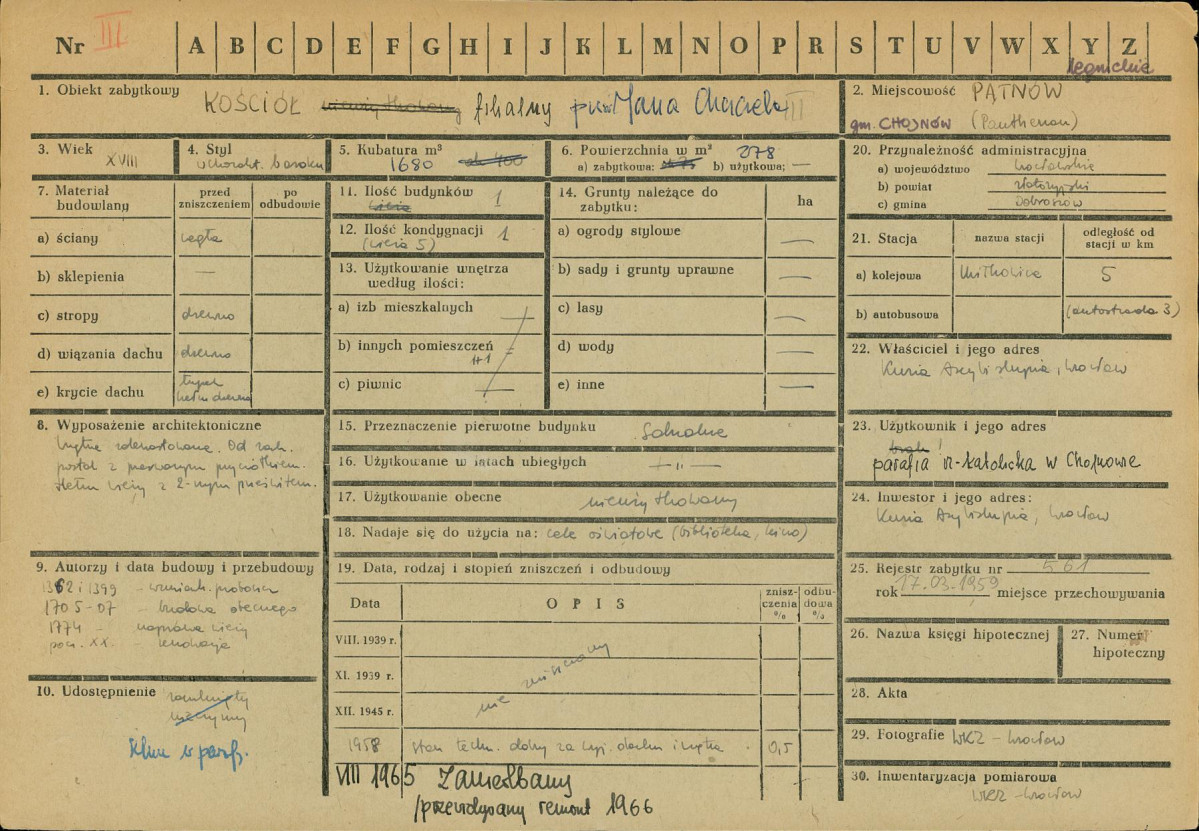 Nr III A B C D E F G H I J K L M N O P R S T U V W X Y Z
legnickie
1. Obiekt zabytkowy KOŚCIÓŁ nieużytkowany filialny Jana Chrzciciela III
2. Miejscowość PĄTNÓW
gm. CHOJNÓW (Panthenau)
3. Wiek XVIII
4. Styl baroku
5. Kubatura m³ 1680 ok 400
6. Powierzchnia w m² 278
a) zabytkowa: b) użytkowa; —
20. Przynależność administracyjna
a) województwo wrocławskie
b) powiat złotoryjski
c) gmina
7. Materiał budowlany
przed zniszczeniem
po odbudowie
a) ściany cegła
b) sklepienia —
c) stropy drewno
d) wiązania dachu drewno
e) krycie dachu łupek
hełm drewno
11. Ilość budynków 1
wieża
12. Ilość kondygnacji 1
(wieża 5)
13. Użytkowanie wnętrza
według ilości:
a) izb mieszkalnych —
b) innych pomieszczeń
1+1
c) piwnic —
14. Grunty należące do
zabytku:
ha
a) ogrody stylowe —
b) sady i grunty uprawne —
c) lasy —
d) wody —
e) inne —
21. Stacja
nazwa stacji
odległość od
stacji w km
a) kolejowa Miłkowice 5
b) autobusowa (autostrada 3)
22. Właściciel i jego adres
Kuria Arcybiskupia, Wrocław
8. Wyposażenie architektoniczne
Wnętrze zdewastowane. Od zach.
portal z przerwanym przyczółkiem.
Hełm wieży z 2-nym prześwitem.
15. Przeznaczenie pierwotne budynku Sakralne
16. Użytkowanie w latach ubiegłych — " —
17. Użytkowanie obecne nieużytkowany
18. Nadaje się do użycia na: cele oświatowe (biblioteka, kino)
23. Użytkownik i jego adres
brak !
parafia rz-katolicka w Chojnowie
24. Inwestor i jego adres:
Kuria Arcybiskupia, Wrocław
9. Autorzy i data budowy i przebudowy
1362 i 1399 – wzmiank. proboszcz
1705-07 – budowa obecnego
1774 – naprawa wieży
pocz. XX. – renowacja
19. Data, rodzaj i stopień zniszczeń i odbudowy
Data
O P I S
znisz-
czenia
%
odbu-
dowa
%
VIII. 1939 r.
XI. 1939 r.
XII. 1945 r.
nie zniszczony
1958 stan techn. dobry za wyj. dachu i wnętrza. 0,5
VIII 1965 Zaniedbany
/przewidywany remont 1966
25. Rejestr zabytku nr 561
rok 17.03.1959 miejsce przechowywania
26. Nazwa księgi hipotecznej
27. Numer
hipoteczny
28. Akta
29. Fotografie WKZ – Wrocław
30. Inwentaryzacja pomiarowa
WKZ – Wrocław
10. Udostępnienie zamknięty
nieczynny
Klucz w paraf.